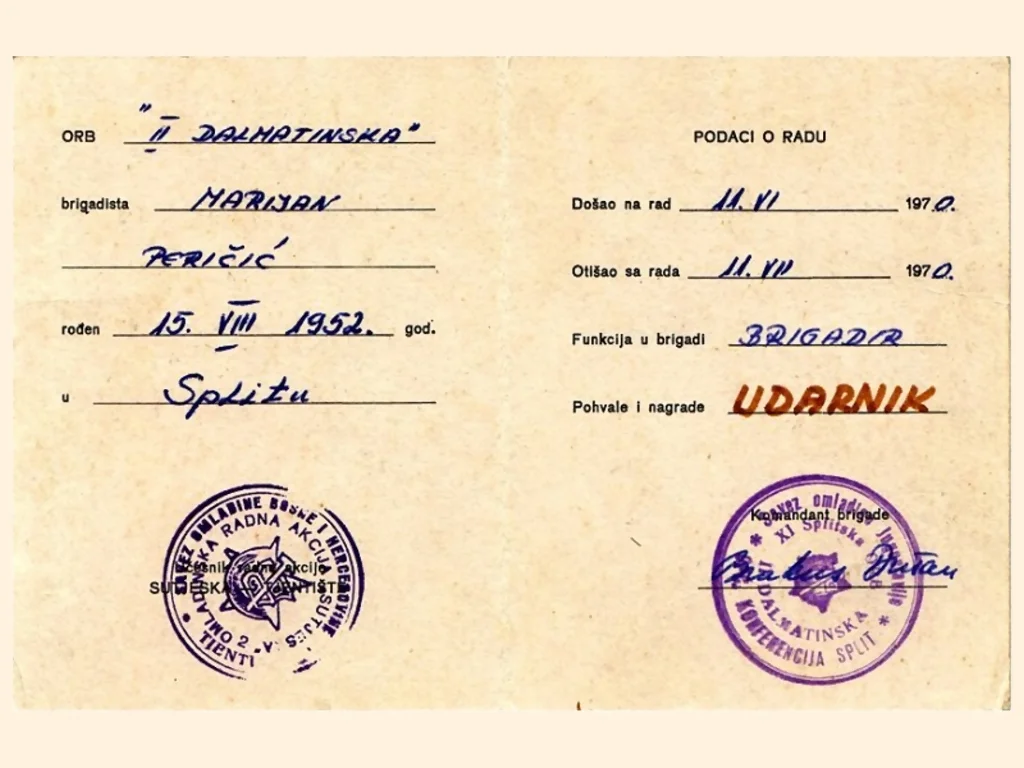 ORB "II DALMATINSKA"
brigadista MARIJAN
PERIČIĆ
rođen 15. VIII 1952. god.
u Splitu
SAVEZ OMLADINE BOSNE I HERCEGOVINE
OMLADINSKA RADNA AKCIJA SUTJESKA
2
TJENTI
učesnik radne akcije
SUTJESKA TJENTIŠTE
PODACI O RADU
Došao na rad 11. VI 1970.
Otišao sa rada 11. VII 1970.
Funkcija u brigadi BRIGADIR
Pohvale i nagrade UDARNIK
Komandant brigade
Savez omladine Jugoslavije
XI Splitska
II DALMATINSKA
KONFERENCIJA SPLIT